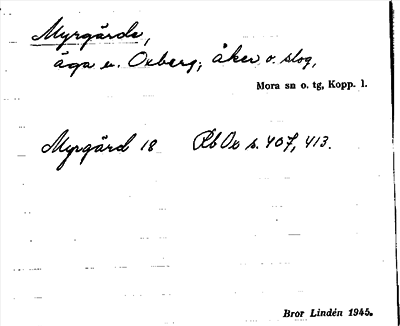 Myrgårde,
äga u. Oxberg; åker o. slog,
Mora sn o. tg, Kopp. l.
Myrgärd 18 RbOx s. 407, 413.
Bror Lindén 1945.